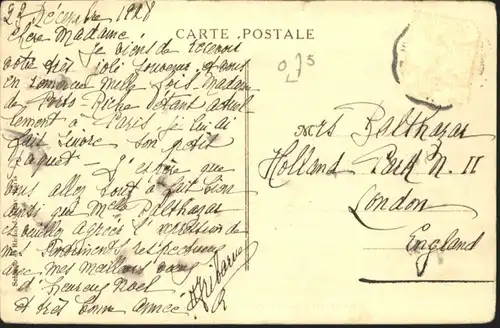 22 Décembre 1928
CARTE POSTALE
Chère Madame
Je viens de recevoir
votre très joli souvenir et vous
en remercie mille fois Madame
de étant actuel
lement à Paris je lui ai
fait suivre son petit
paquet - J'espère que
vous allez tout à fait bien
ainsi que Melle Balthazar
et veuillez agréer l'expression de
mes sentiments respectueux
avec mes meilleurs vœux
d'heureux Noel
et très bonne année
0,75
Mrs Balthazar
Holland Park N. 11
London
England